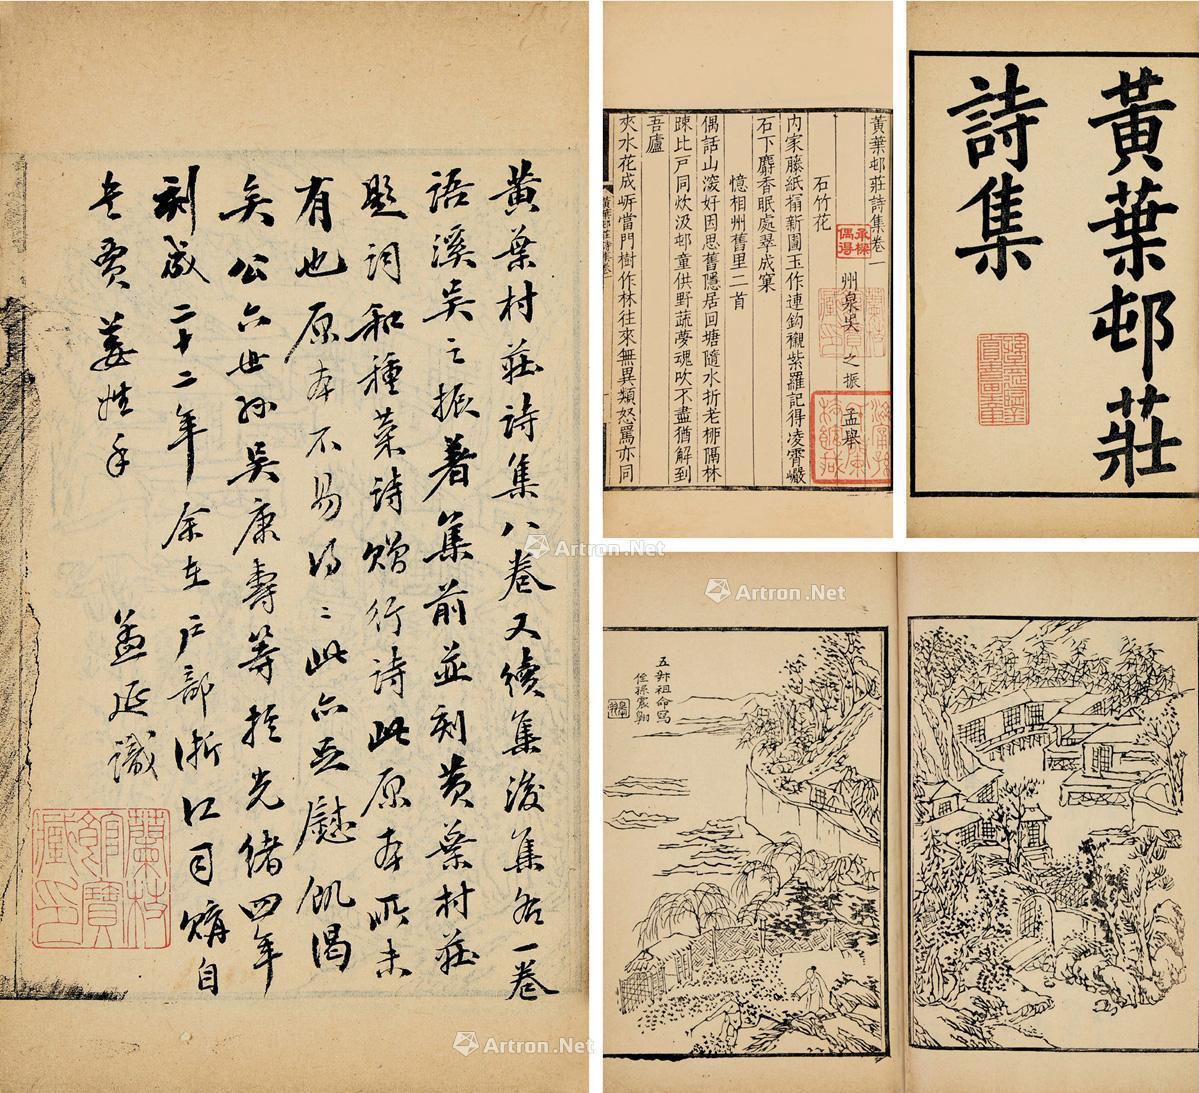 黃葉村莊詩集八卷又續集後集各一卷
語溪吳之振著集前並刻黃葉村莊
題詞和種菜詩贈行詩此原本所未
有也原本不易得得此亦足慰飢渴
矣公六世孫吳康壽等於光緒四年
刻成二十二年余在戶部浙江司購自
書賈姜姓手
孟延識
蘭枝館寶藏印
黃葉邨莊詩集卷一
州泉吳之振孟舉
石竹花
內家藤紙搨新圖玉作連鈎襯紫羅記得凌霄巖
石下麝香眠處翠成窠
憶相州舊里二首
偶話山溪好因思舊隱居回塘隨水折老栁隔林
疎比戸同炊汲邨童供野蔬夢魂吹不盡猶解到
吾廬
夾水花成㟁當門樹作林往來無異類怒罵亦同
黃葉邨莊詩集卷一
承樑偶得
黃葉邨莊
詩集
五叔祖命寫
侄孫震翔
Artron.Net
Artron.Net
Artron.Net